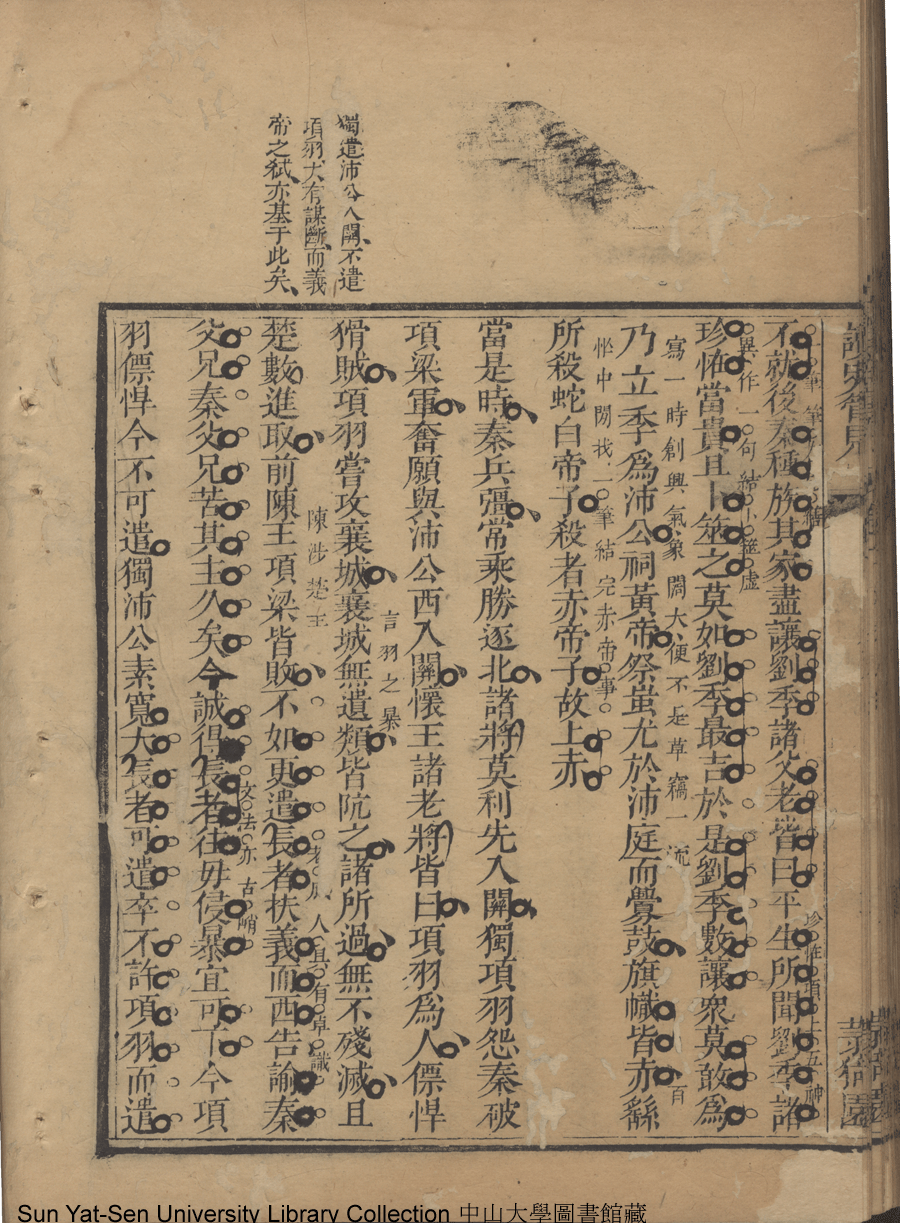 獨遣沛公入關不遣
項羽大有謀斷而義
帝之弒亦基于此矣
不就後秦種族其家盡讓劉季諸父老皆曰平生所聞劉季諸
珍怪項上五神
異作一句結卜筮虛
珍怪當貴且卜筮之莫如劉季最吉於是劉季數讓衆莫敢為
寫一時創興氣象闊大便不是草竊一流
乃立季為沛公祠黃帝祭蚩尤於沛庭而釁鼓旗幟皆赤繇
百忙中閒找一筆結完赤帝事
所殺蛇白帝子殺者赤帝子故上赤
當是時秦兵彊常乘勝逐北諸將莫利先入關獨項羽怨秦破
項梁軍奮願與沛公西入關懷王諸老將皆曰項羽為人僄悍
言羽之暴
猾賊項羽嘗攻襄城襄城無遺類皆阬之諸所過無不殘滅且
陳涉楚王
老成人具有卓識
楚數進取前陳王項梁皆敗不如更遣長者扶義而西告諭秦
文法亦古峭
父兄秦父兄苦其主久矣今誠得長者往毋侵暴宜可下今項
羽僄悍今不可遣獨沛公素寬大長者可遣卒不許項羽而遣
Sun Yat-Sen University Library Collection 中山大學圖書館藏